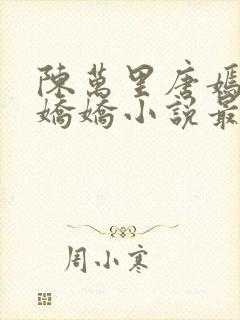 陳萬里唐嫣
嬌嬌小說最
周小寒